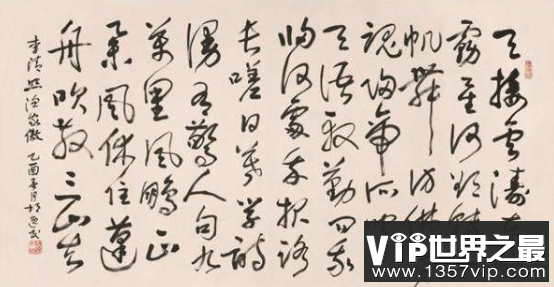 天接雲濤
霧星河欲轉
帆舞彷彿
魂歸帝所
天語殷勤問我
歸何處我報路
長嗟日暮學詩
謾有驚人句九
萬里風鵬正
舉風休住蓬
舟吹取三山去
李清照漁家傲 乙酉春月
VIP世界之最
www.1357vip.com